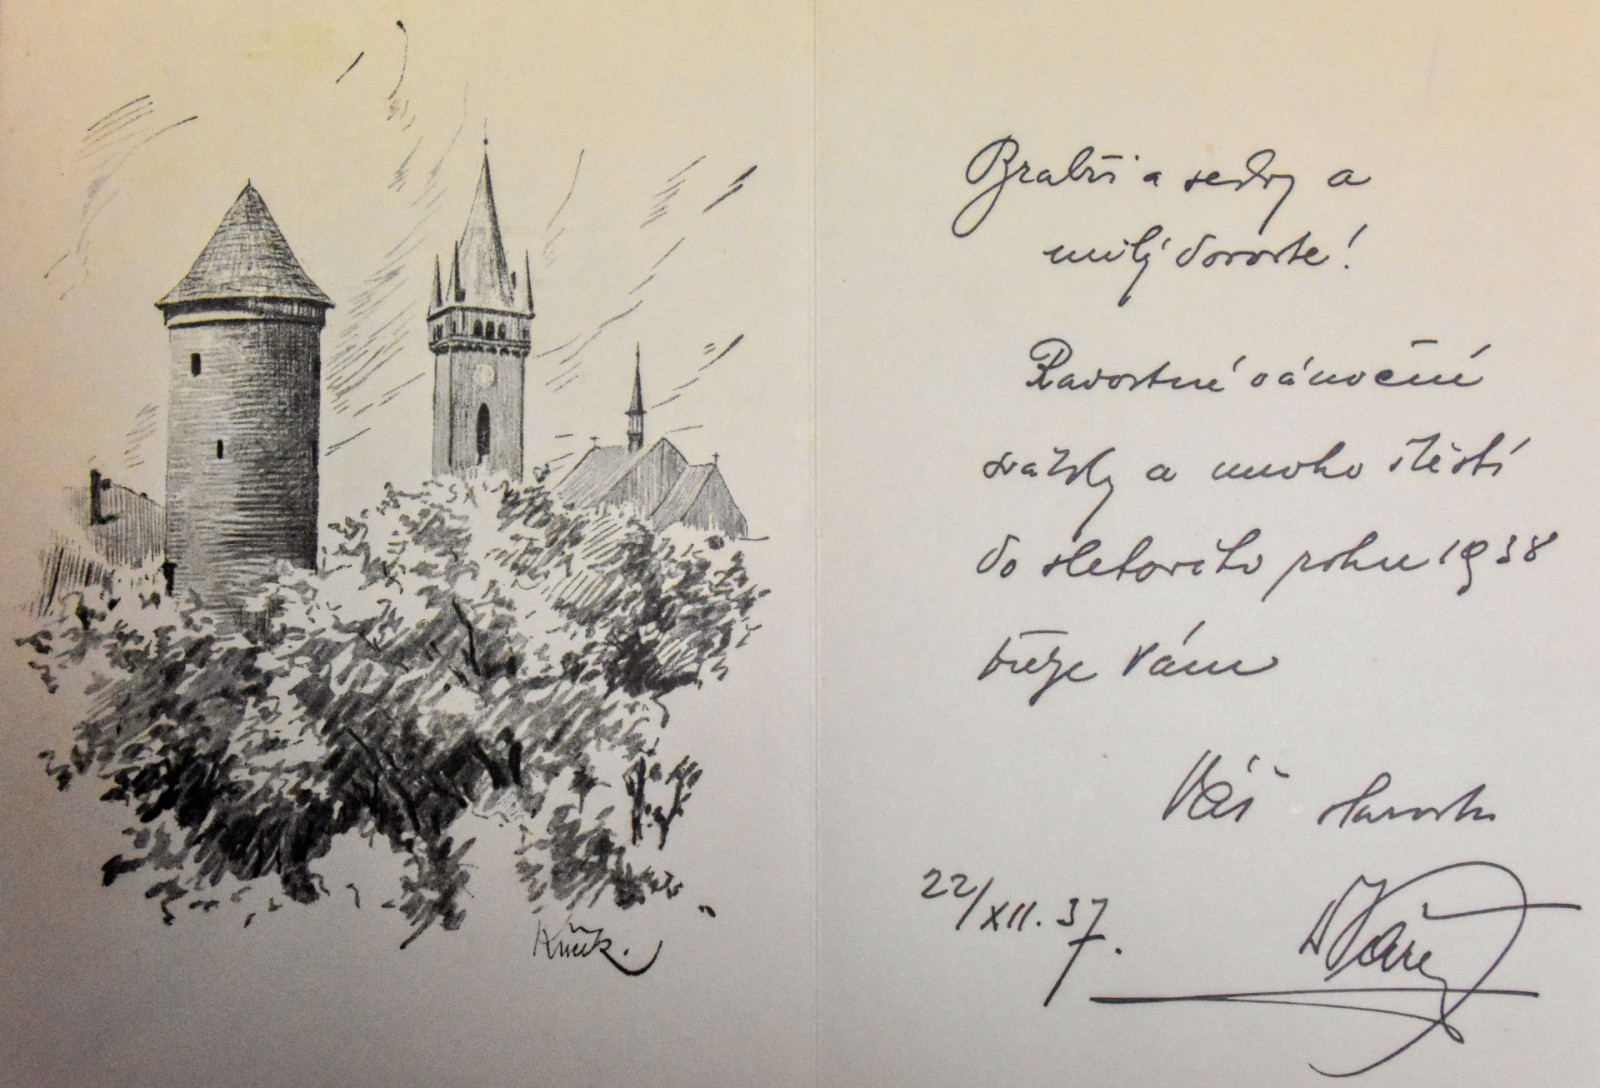 Bratři a sestry a
milý doroste!
Radostné vánoční
svátky a mnoho štěstí
do sletového roku 1938
přeje Vám
Váš starosta
22/XII. 37.